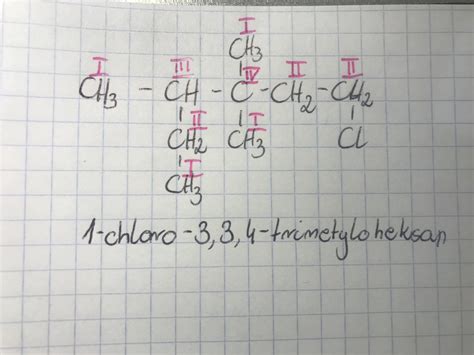 I
CH3
I III IV II II
CH3 - CH - C - CH2 - CH2
II I
CH2 CH3 Cl
I
CH3
1-chloro-3,3,4-trimetyloheksan